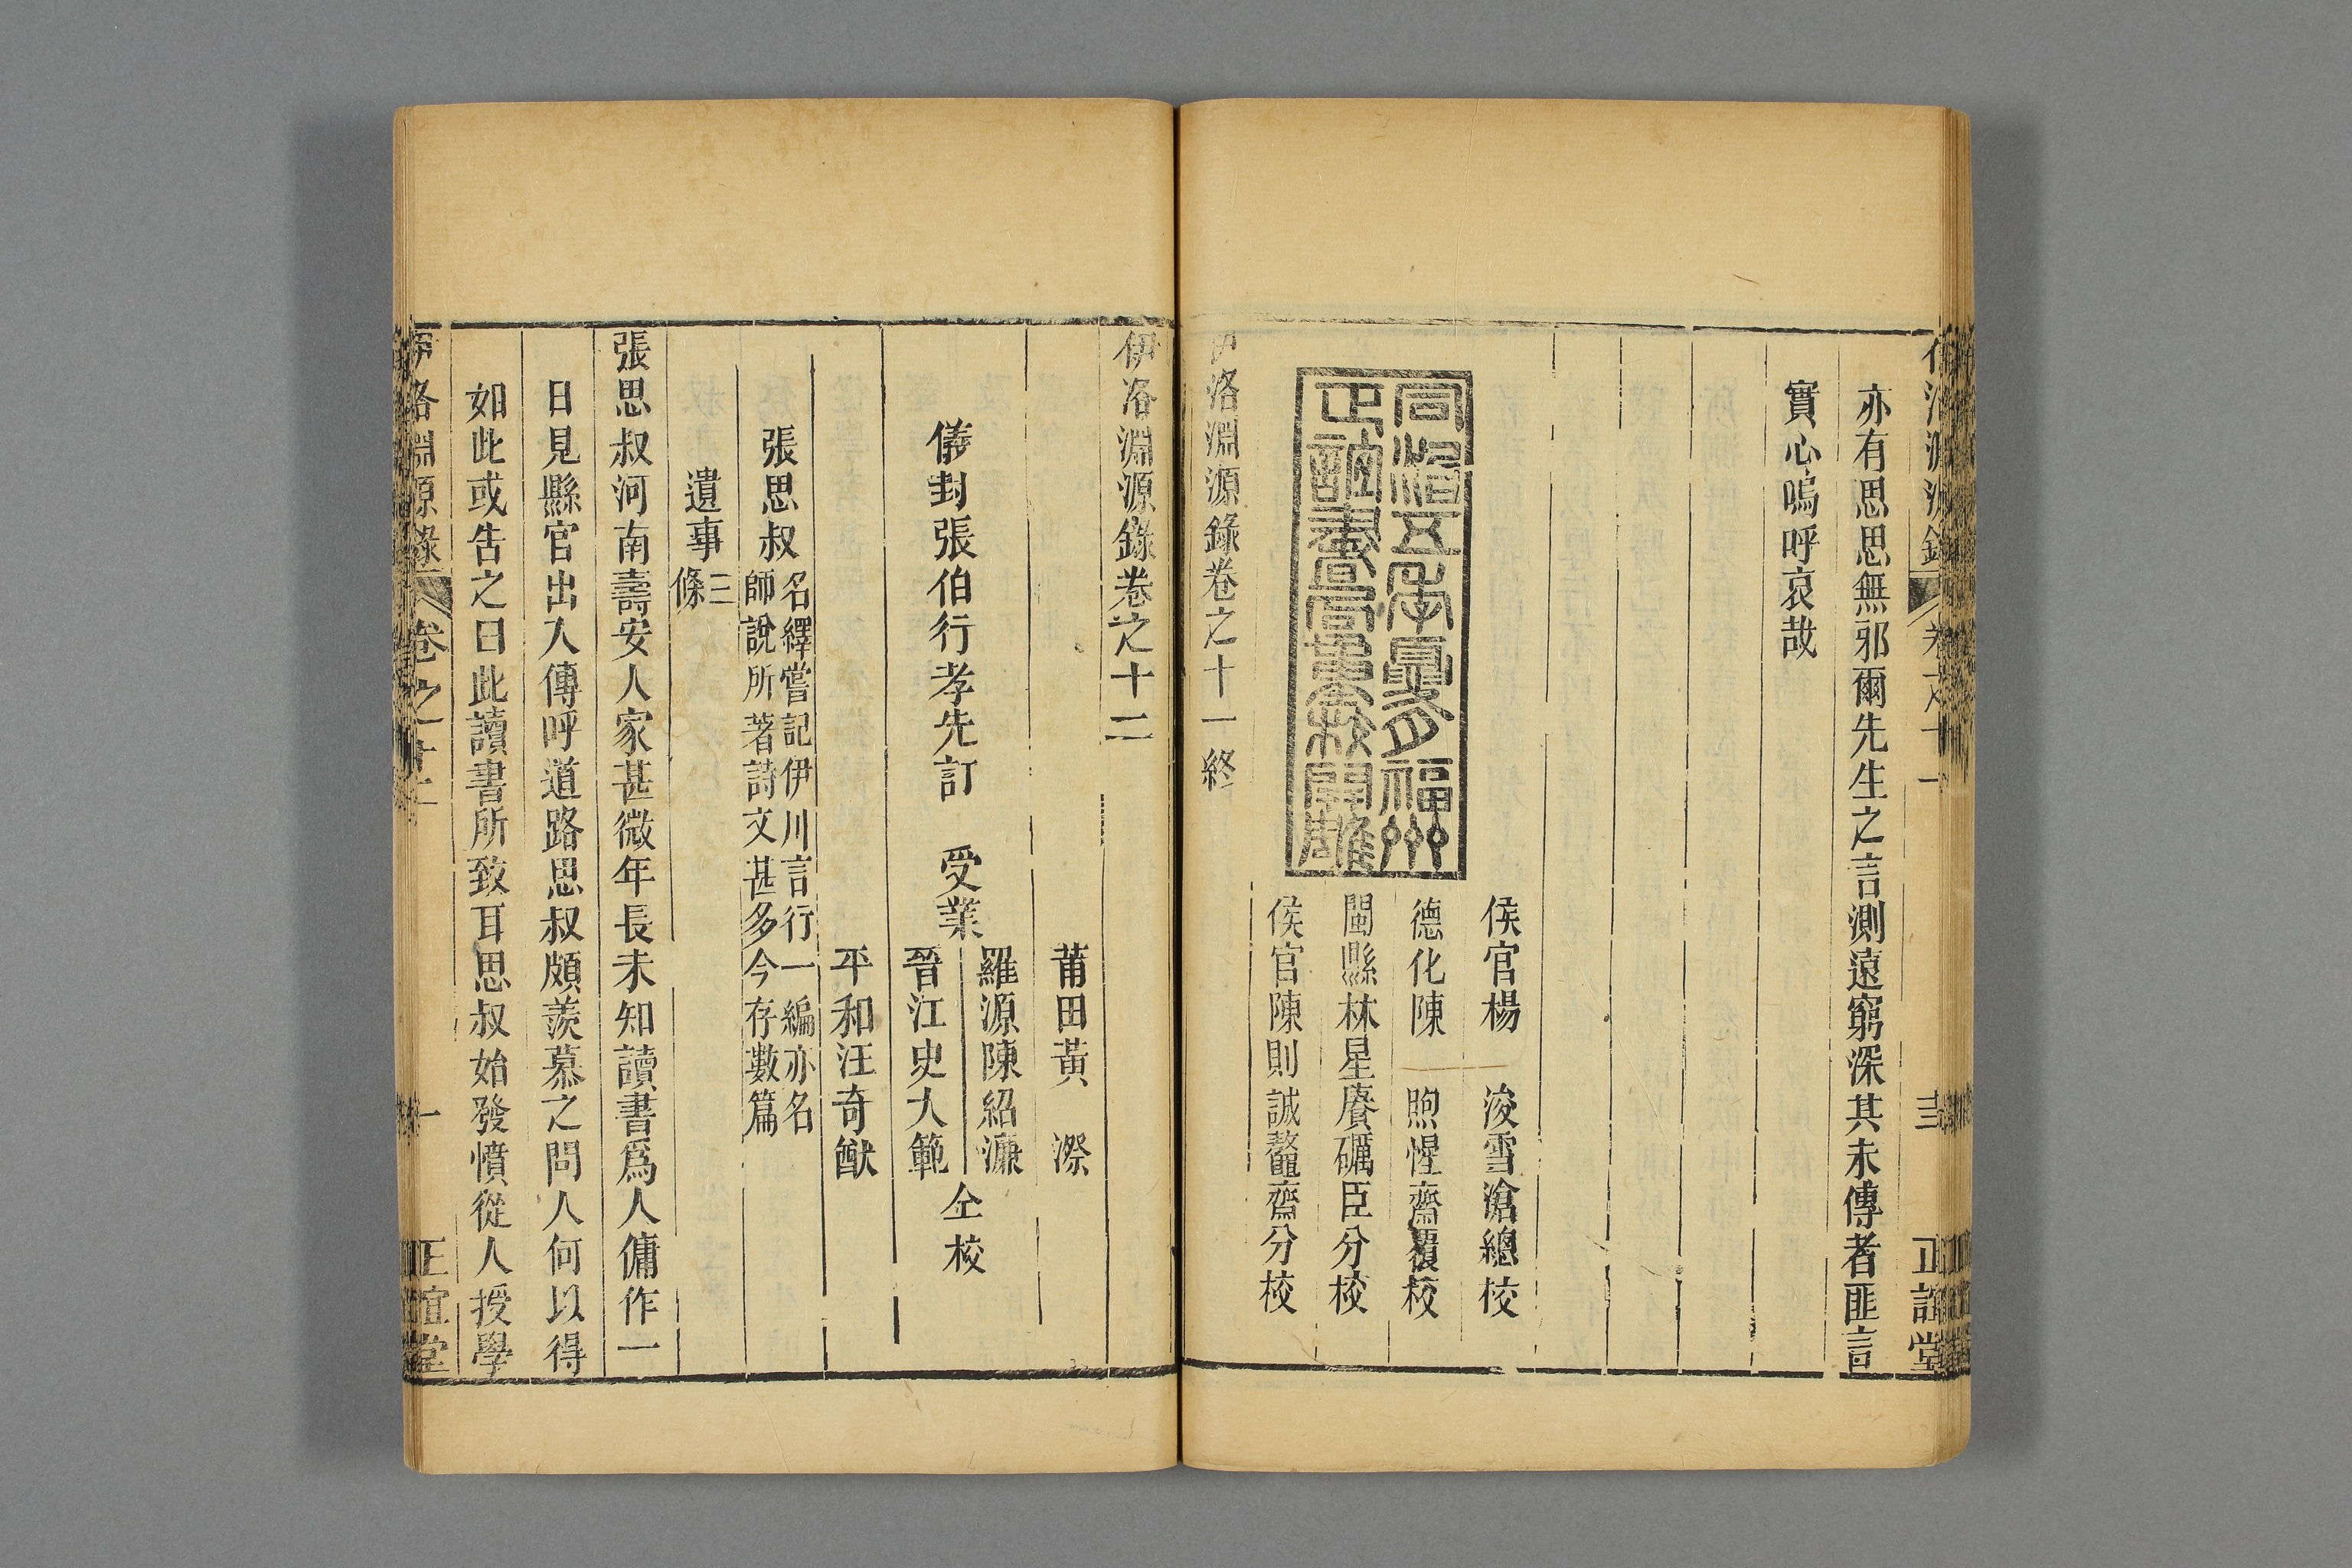 亦有思思無邪爾先生之言測遠窮深其未傳者匪言
實心嗚呼哀哉
侯官楊 浚雪滄總校
德化陳 煦惺齋覆校
閩縣林星賡礪臣分校
侯官陳則誠鼇齋分校
同治五年夏月福州
正誼書局重校開雕
伊洛淵源錄卷之十一終
伊洛淵源錄卷之十二
莆田黃 漈
儀封張伯行孝先訂 受業
羅源陳紹濂
晉江史大範
仝校
平和汪奇猷
張思叔
名繹嘗記伊川言行一編亦名
師說所著詩文甚多今存數篇
遺事三條
張思叔河南壽安人家甚微年長未知讀書爲人傭作一
日見縣官出入傳呼道路思叔頗羨慕之問人何以得
如此或告之曰此讀書所致耳思叔始發憤從人授學
伊洛淵源錄 卷之十二 一 正誼堂